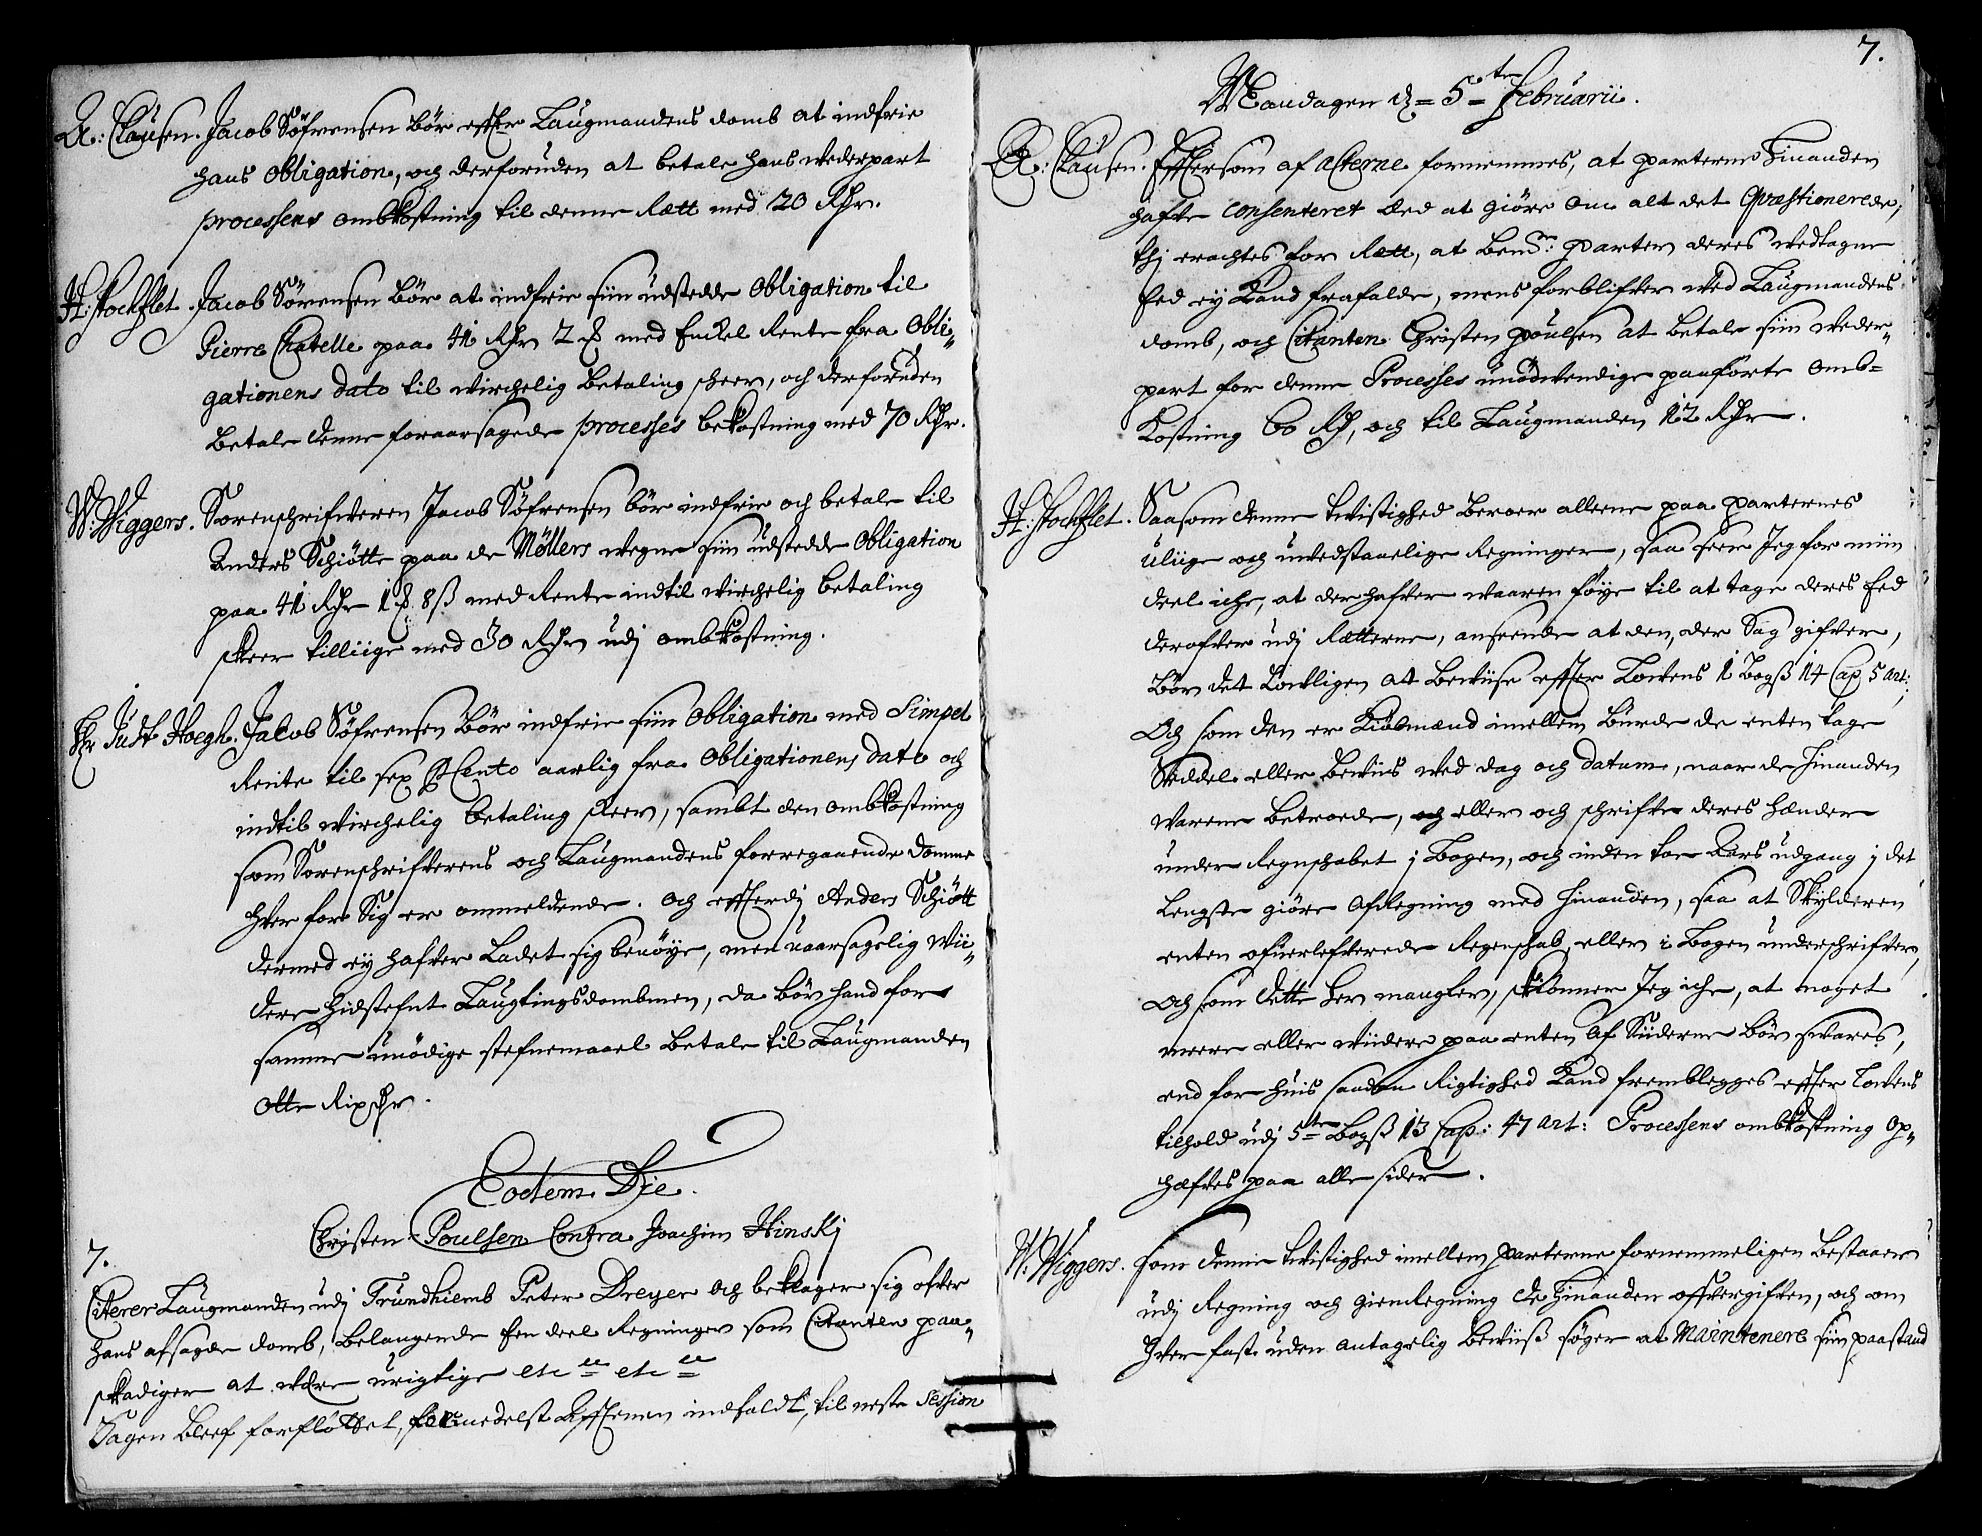 A: Clausen. Jacob Söfrensen bör effter Laugmandens domb at indfrie
hans Obligation, och derforuden at betale hans wederpart
processens ombkostning til denne Rætt med 20 Rdr.
H: Stochflet. Jacob Sörensen bör at indfrie siin udstedde Obligation til
Pierre Chatelle paa 41 Rdr 2 ß med Enckel Rente fra Obli-
gationens dato til wirchelig betaling scheer, och derforuden
betale denne foraarsagede processes bekostning med 70 Rdr.
W: Wiggers. Sorenschrifweren Jacob Söfrensen bör indfrie och betale til
Anders Schiötte paa de Møllers wegne siin udstedde Obligation
paa 41 Rdr 1 8 ß med Rente indtil wirchelig betaling
skeer tilliige med 30 Rdr udj ombkostning.
Hr Just Hoegh. Jacob Söfrensen bör indfrie siin Obligation med Simpel
Rente til sex PCento aarlig fra Obligationens dato och
indtil wirchelig betaling skeer, sambt den ombkostning
som Sorenschrifterens och Laugmandens forregaaende domme
hver for Sig er ommeldende. Och effterdj Anders Schiött
dermed ey hafver Ladet sig benöye, men uaarsagelig wii-
dere hidstefnt Laugtingsdombmen, da bör hand for
samme unödige stefnemaael betale til Laugmanden
Otte Rixdr.
Eodem Die.
Christen Poulsen Contra Joachim Hinskj
7.
Citerer Laugmanden udj Trundhiemb Peter Dreyer och beklager sig ofver
hans afsagde domb, belangende Een deel Regninger som Citanten paa-
skadiger at wære urigtige etc etc
Sagen bleef forflöttet, formedelst Afftenen indfaldt, til neste Session
7.
Mandagen d 5te Februarii.
A: Clausen. Efftersom af Acterne fornemmes, at parterne hinanden
hafver Consenteret Eed at giöre om alt det Qvæstionerede,
thj erachtes for Rætt, at bemte: parter deres wedtagne
Eed ey kand frafalde, mens forblifver wed Laugmandens
domb, och Citanten Christen Poulsen at betale siin weder-
part for denne Processes unödwendige paaförte omb-
kostning 60 Rdr, och til Laugmanden 12 Rdr.
H: Stochflet. Saasom denne twistighed beroer alleene paa parternes
uliige och uwedstaaelige Regninger, saa seer Jeg for miin
deel iche, at der hafver waaren föye til at tage deres Eed
derofver udj Rætterne, anseende at den, der Sag gifver,
bör det Lovligen at bewiise effter Lovens 1 Bogs 14 Cap 5 art:
Och som den er Kiöbmænd imellem burde de enten tage
Seddel eller bewiis wed dag och datum, naar de hinanden
warene betroede, eller och schrifve deres hænder
under Regnschabet i Bogen, och inden toe Aars udgang i det
Lengste giöre Afregning med hinanden, saa at Skylderen
enten ofuerlefverede Regenschab, eller i Bogen underschrifver,
Och som dette her mangler, skiönner Jeg iche, at noget
meere eller wiidere paa enten af Siiderne bör swares,
end for huis saadan Rigtighed kand fremblegges effter Lovens
tilhold udj 5te Bogs 13 Cap: 47 art: Processens ombkostning op-
hæfves paa alle sider.
W: Wiggers. Som denne twistighed imellem parterne fornemmeligen bestaaer
udj Regning och gienRegning de hinanden offvergifver, och om
hver fast uden antagelig bewiiß söger at Maintenere siin paastand